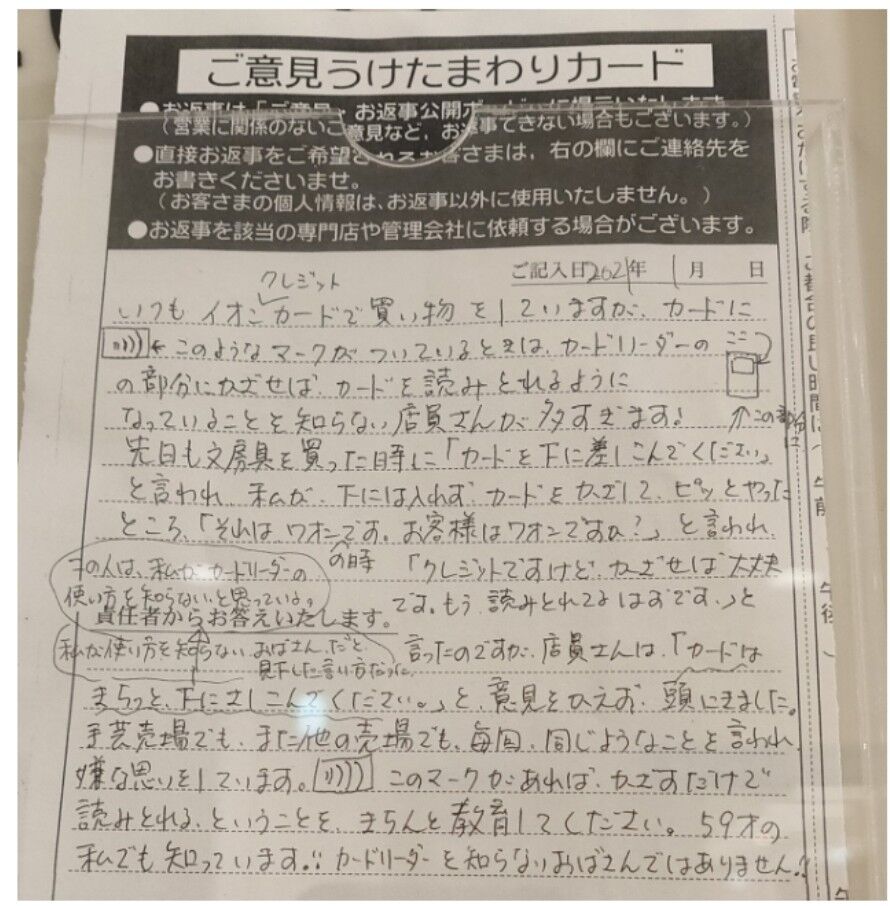 ご意見うけたまわりカード
●お返事は「ご意見・お返事公開ボード」に掲示いたします
（営業に関係のないご意見など、お返事できない場合もございます。）
●直接お返事をご希望されるお客さまは、右の欄にご連絡先を
お書きくださいませ。
（お客さまの個人情報は、お返事以外に使用いたしません。）
●お返事を該当の専門店や管理会社に依頼する場合がございます。
ご記入日2021年 1月 日
クレジット
いつも イオンカードで買い物をしていますが、カードに
←このようなマークがついているときは、カードリーダーの
ここ
の部分にかざせば、カードを読みとれるように
なっていることを知らない店員さんが多すぎます!
↑この部分に
先日も文房具を買った時に「カードを下に差しこんでください」
と言われ、私が、下には入れず、カードをかざして、ピッとやった
ところ、「それは、ワオンです。お客様はワオンですか?」と言われ、
この人は、私がカードリーダーの
使い方を知らないと思っている。
の時
「クレジットですけど、かざせば大丈夫
です。もう、読みとれてるはずです。」と
責任者からお答えいたします。
私が使い方を知らないおばさんだと
見下した言い方だった
言ったのですが、店員さんは、「カードは
きちっと、下にさしこんでください。」と、意見をかえず、頭にきました。
手芸売場でも、また他の売場でも、毎回、同じようなことを言われ、
嫌な思いをしています。 このマークがあれば、かざすだけで
読みとれる、ということを、きちんと教育してください。59才の
私でも知っています!! カードリーダーを知らないおばさんではありません!!